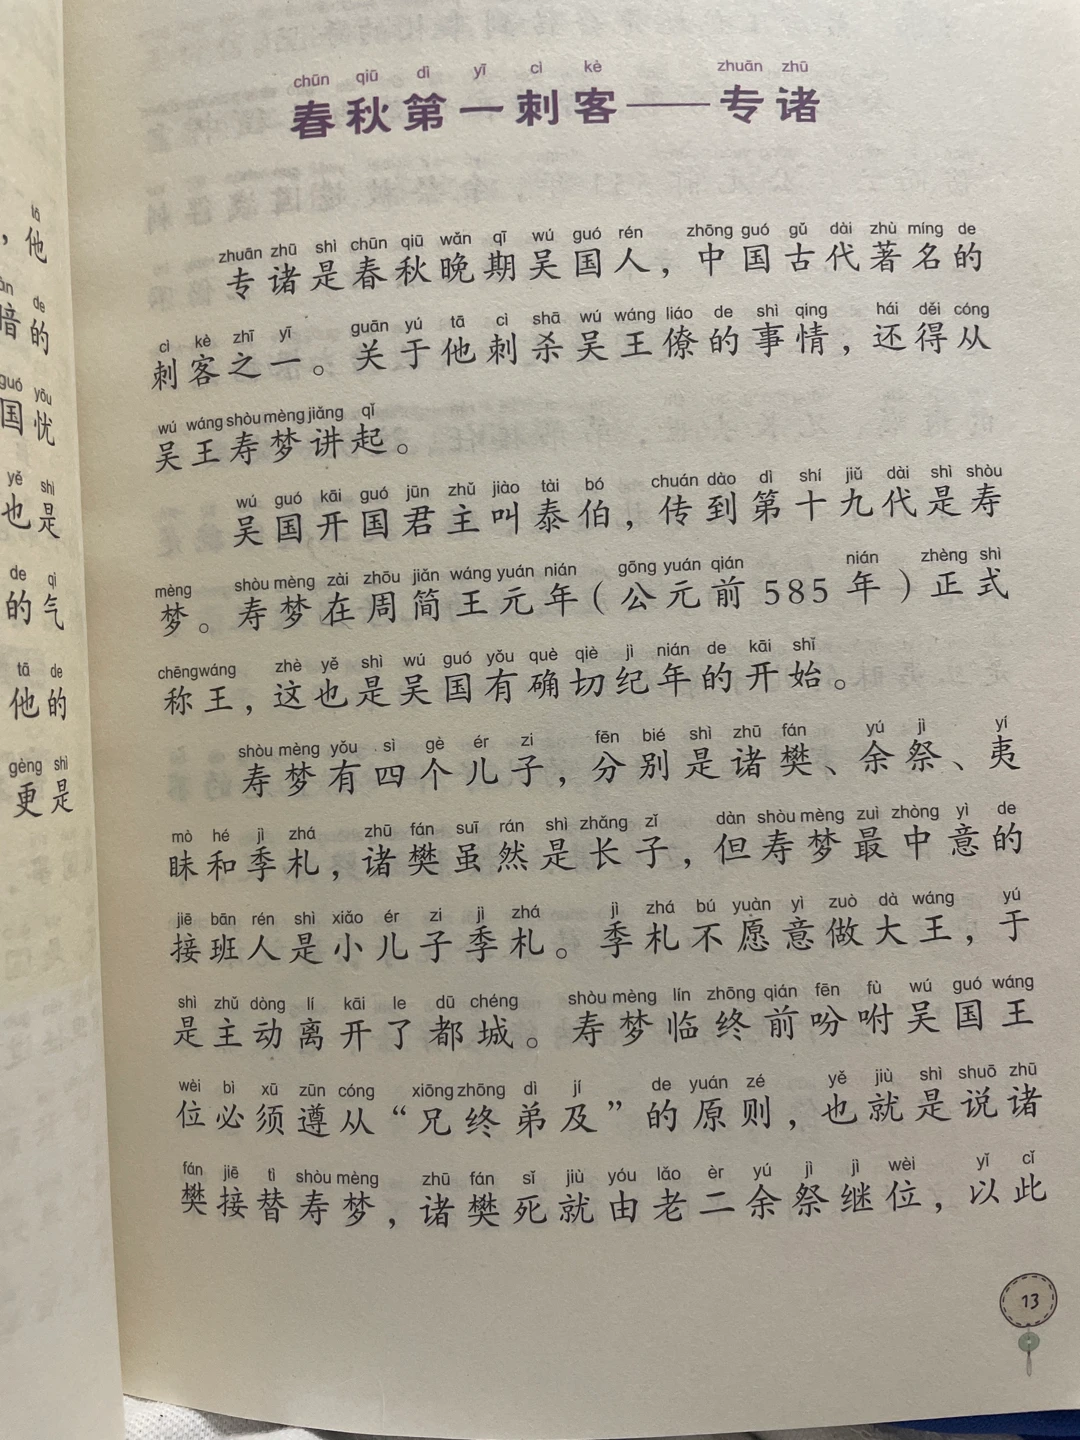 tā
，他
àn de
暗的
guó yōu
国忧
yě shì
也是
de qì
的气
tā de
他的
gèng shì
更是
chūn qiū dì yī cì kè zhuān zhū
春秋第一刺客——专诸
zhuān zhū shì chūn qiū wǎn qī wú guó rén zhōng guó gǔ dài zhù míng de
专诸是春秋晚期吴国人，中国古代著名的
cì kè zhī yī guān yú tā cì shā wú wáng liáo de shì qing hái děi cóng
刺客之一。关于他刺杀吴王僚的事情，还得从
wú wáng shòu mèng jiǎng qǐ
吴王寿梦讲起。
wú guó kāi guó jūn zhǔ jiào tài bó chuán dào dì shí jiǔ dài shì shòu
吴国开国君主叫泰伯，传到第十九代是寿
mèng shòu mèng zài zhōu jiǎn wáng yuán nián gōng yuán qián nián zhèng shì
梦。寿梦在周简王元年（公元前585年）正式
chēng wáng zhè yě shì wú guó yǒu què qiè jì nián de kāi shǐ
称王，这也是吴国有确切纪年的开始。
shòu mèng yǒu sì gè ér zi fēn bié shì zhū fán yú jì yí
寿梦有四个儿子，分别是诸樊、余祭、夷
mò hé jì zhá zhū fán suī rán shì zhǎng zǐ dàn shòu mèng zuì zhòng yì de
昧和季札，诸樊虽然是长子，但寿梦最中意的
jiē bān rén shì xiǎo ér zi jì zhá jì zhá bú yuàn yì zuò dà wáng yú
接班人是小儿子季札。季札不愿意做大王，于
shì zhǔ dòng lí kāi le dū chéng shòu mèng lín zhōng qián fēn fù wú guó wáng
是主动离开了都城。寿梦临终前吩咐吴国王
wèi bì xū zūn cóng xiōng zhōng dì jí de yuán zé yě jiù shì shuō zhū
位必须遵从“兄终弟及”的原则，也就是说诸
fán jiē tì shòu mèng zhū fán sǐ jiù yóu lǎo èr yú jì jì wèi yǐ cǐ
樊接替寿梦，诸樊死就由老二余祭继位，以此
13